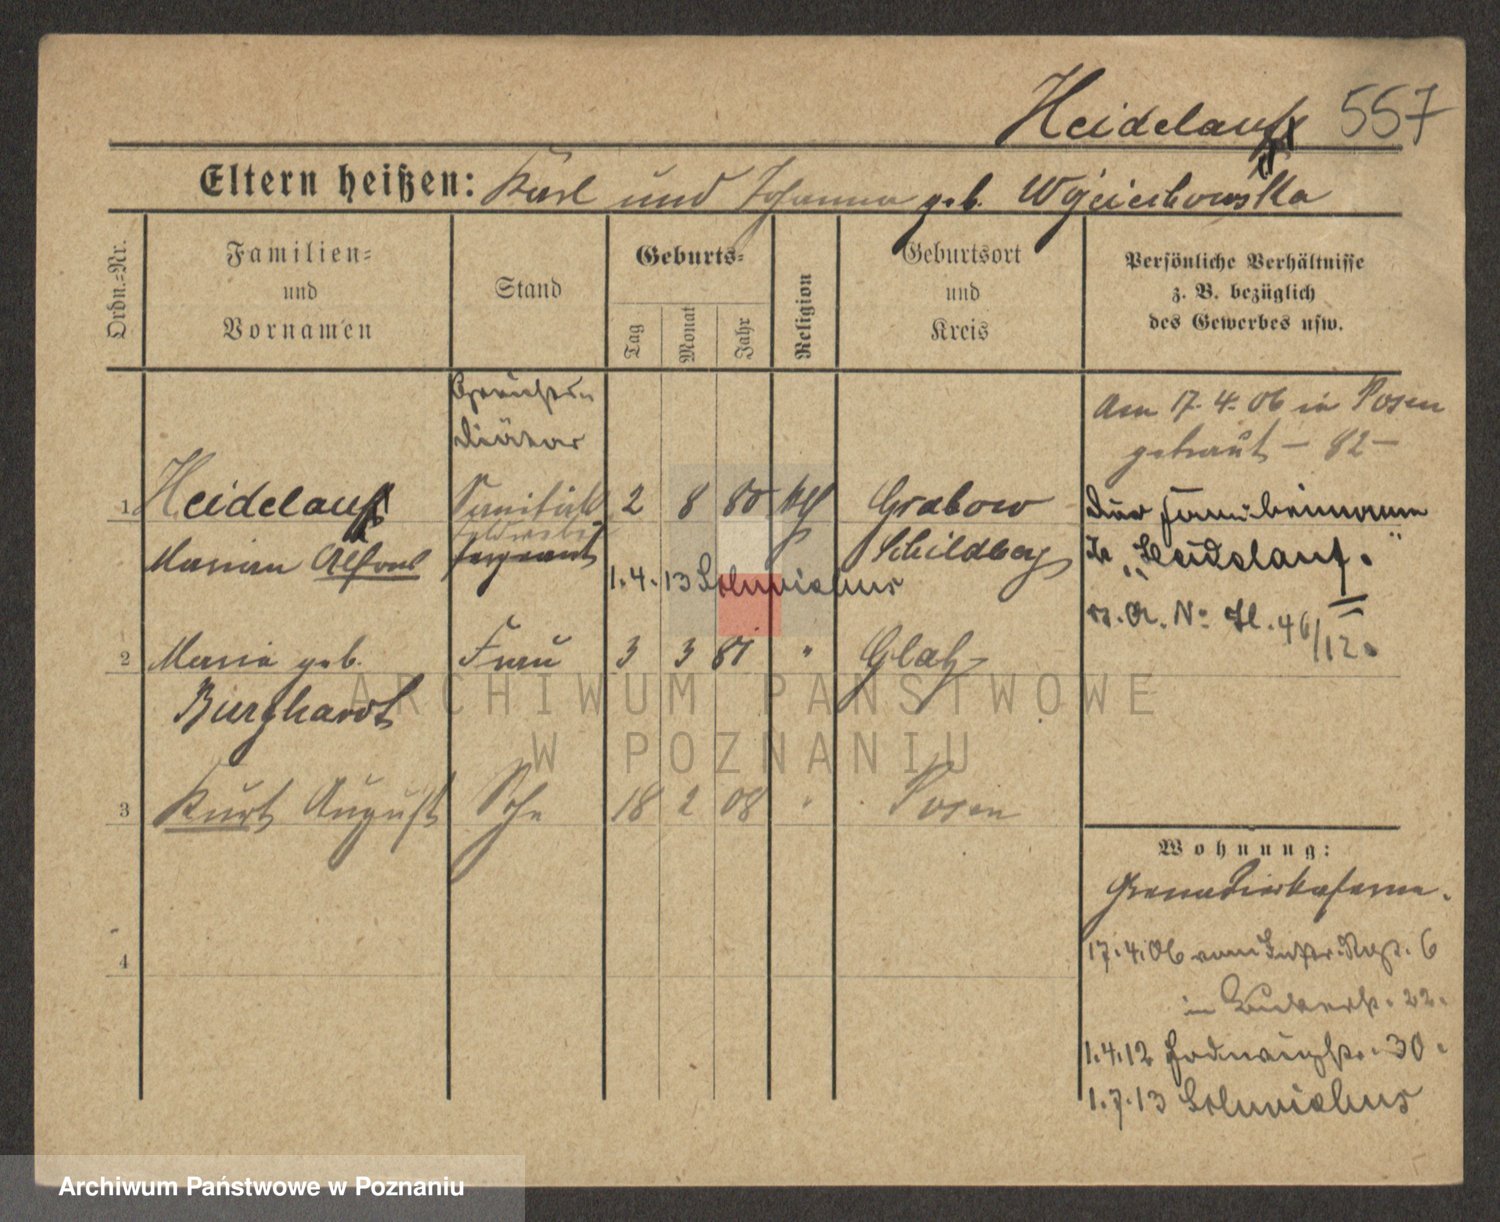 Heidelauf 557
Eltern heißen: Karl und Johanna geb. Wojciechowska
Ordn.-Nr.
Familien-
und
Vornamen
Stand
Geburts-
Tag
Monat
Jahr
Religion
Geburtsort
und
Kreis
Persönliche Verhältnisse
z. B. bezüglich
des Gewerbes usw.
Diätar
1 Heidelauf 2 8 80 Grabow
Marian Alfons Sergeant Schildberg
1.4.13
2 Maria geb. Frau 3 3 81 " Glatz
Burghardt
3 Kurt August Sohn 18 2 08 " Posen
4
Am 17.4.06 in Posen
getraut – 82 –
Der Familienname
ist „Heidelauf."
46/12.
Wohnung:
Grenadierkaserne.
17.4.06 vom Inftr. Rgt. 6
in 22.
1.4.12 30.
1.7.13
ARCHIWUM PAŃSTWOWE
W POZNANIU
Archiwum Państwowe w Poznaniu